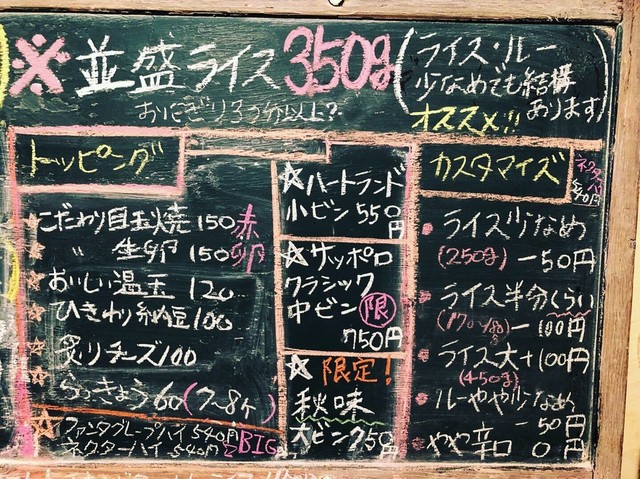 ※並盛ライス350g
(ライス・ルー
少なめでも結構
あります)
おにぎり3つ分以上?
オススメ!!
トッピング
☆こだわり目玉焼150
☆〃 生卵150
赤卵
☆おいしい温玉120
☆ひきわり納豆100
☆炙りチーズ100
☆らっきょう60(7~8ヶ)
☆ファンタグレープハイ540円
ネクターハイ540円
BIG
☆ハートランド
小ビン550円
☆サッポロ
クラシック
中ビン(限)
750円
☆限定!
秋味
大ビン750円
カスタマイズ
ライス少なめ
(250g)-50円
ライス半分くらい
(170g)-100円
ライス大+100円
(450g)
ルーやや少なめ
-50円
やや辛口 0円